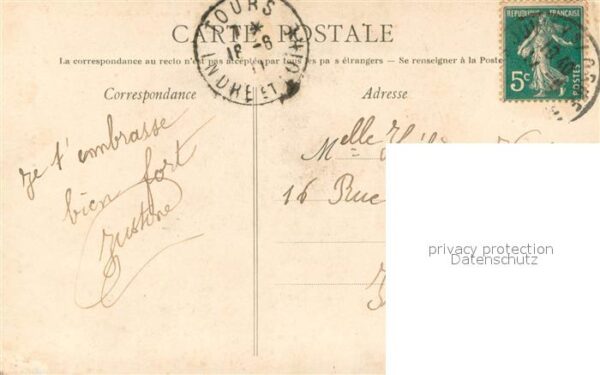 TOURS
18 -8
INDRE ET
CARTE POSTALE
La correspondance au recto n'est pas acceptée par tous les pa s étrangers — Se renseigner à la Poste
REPUBLIQUE FRANÇAISE
5c POSTES
Correspondance
Adresse
je t'embrasse
bien fort
Justine
Melle
16 Rue
privacy protection
Datenschutz